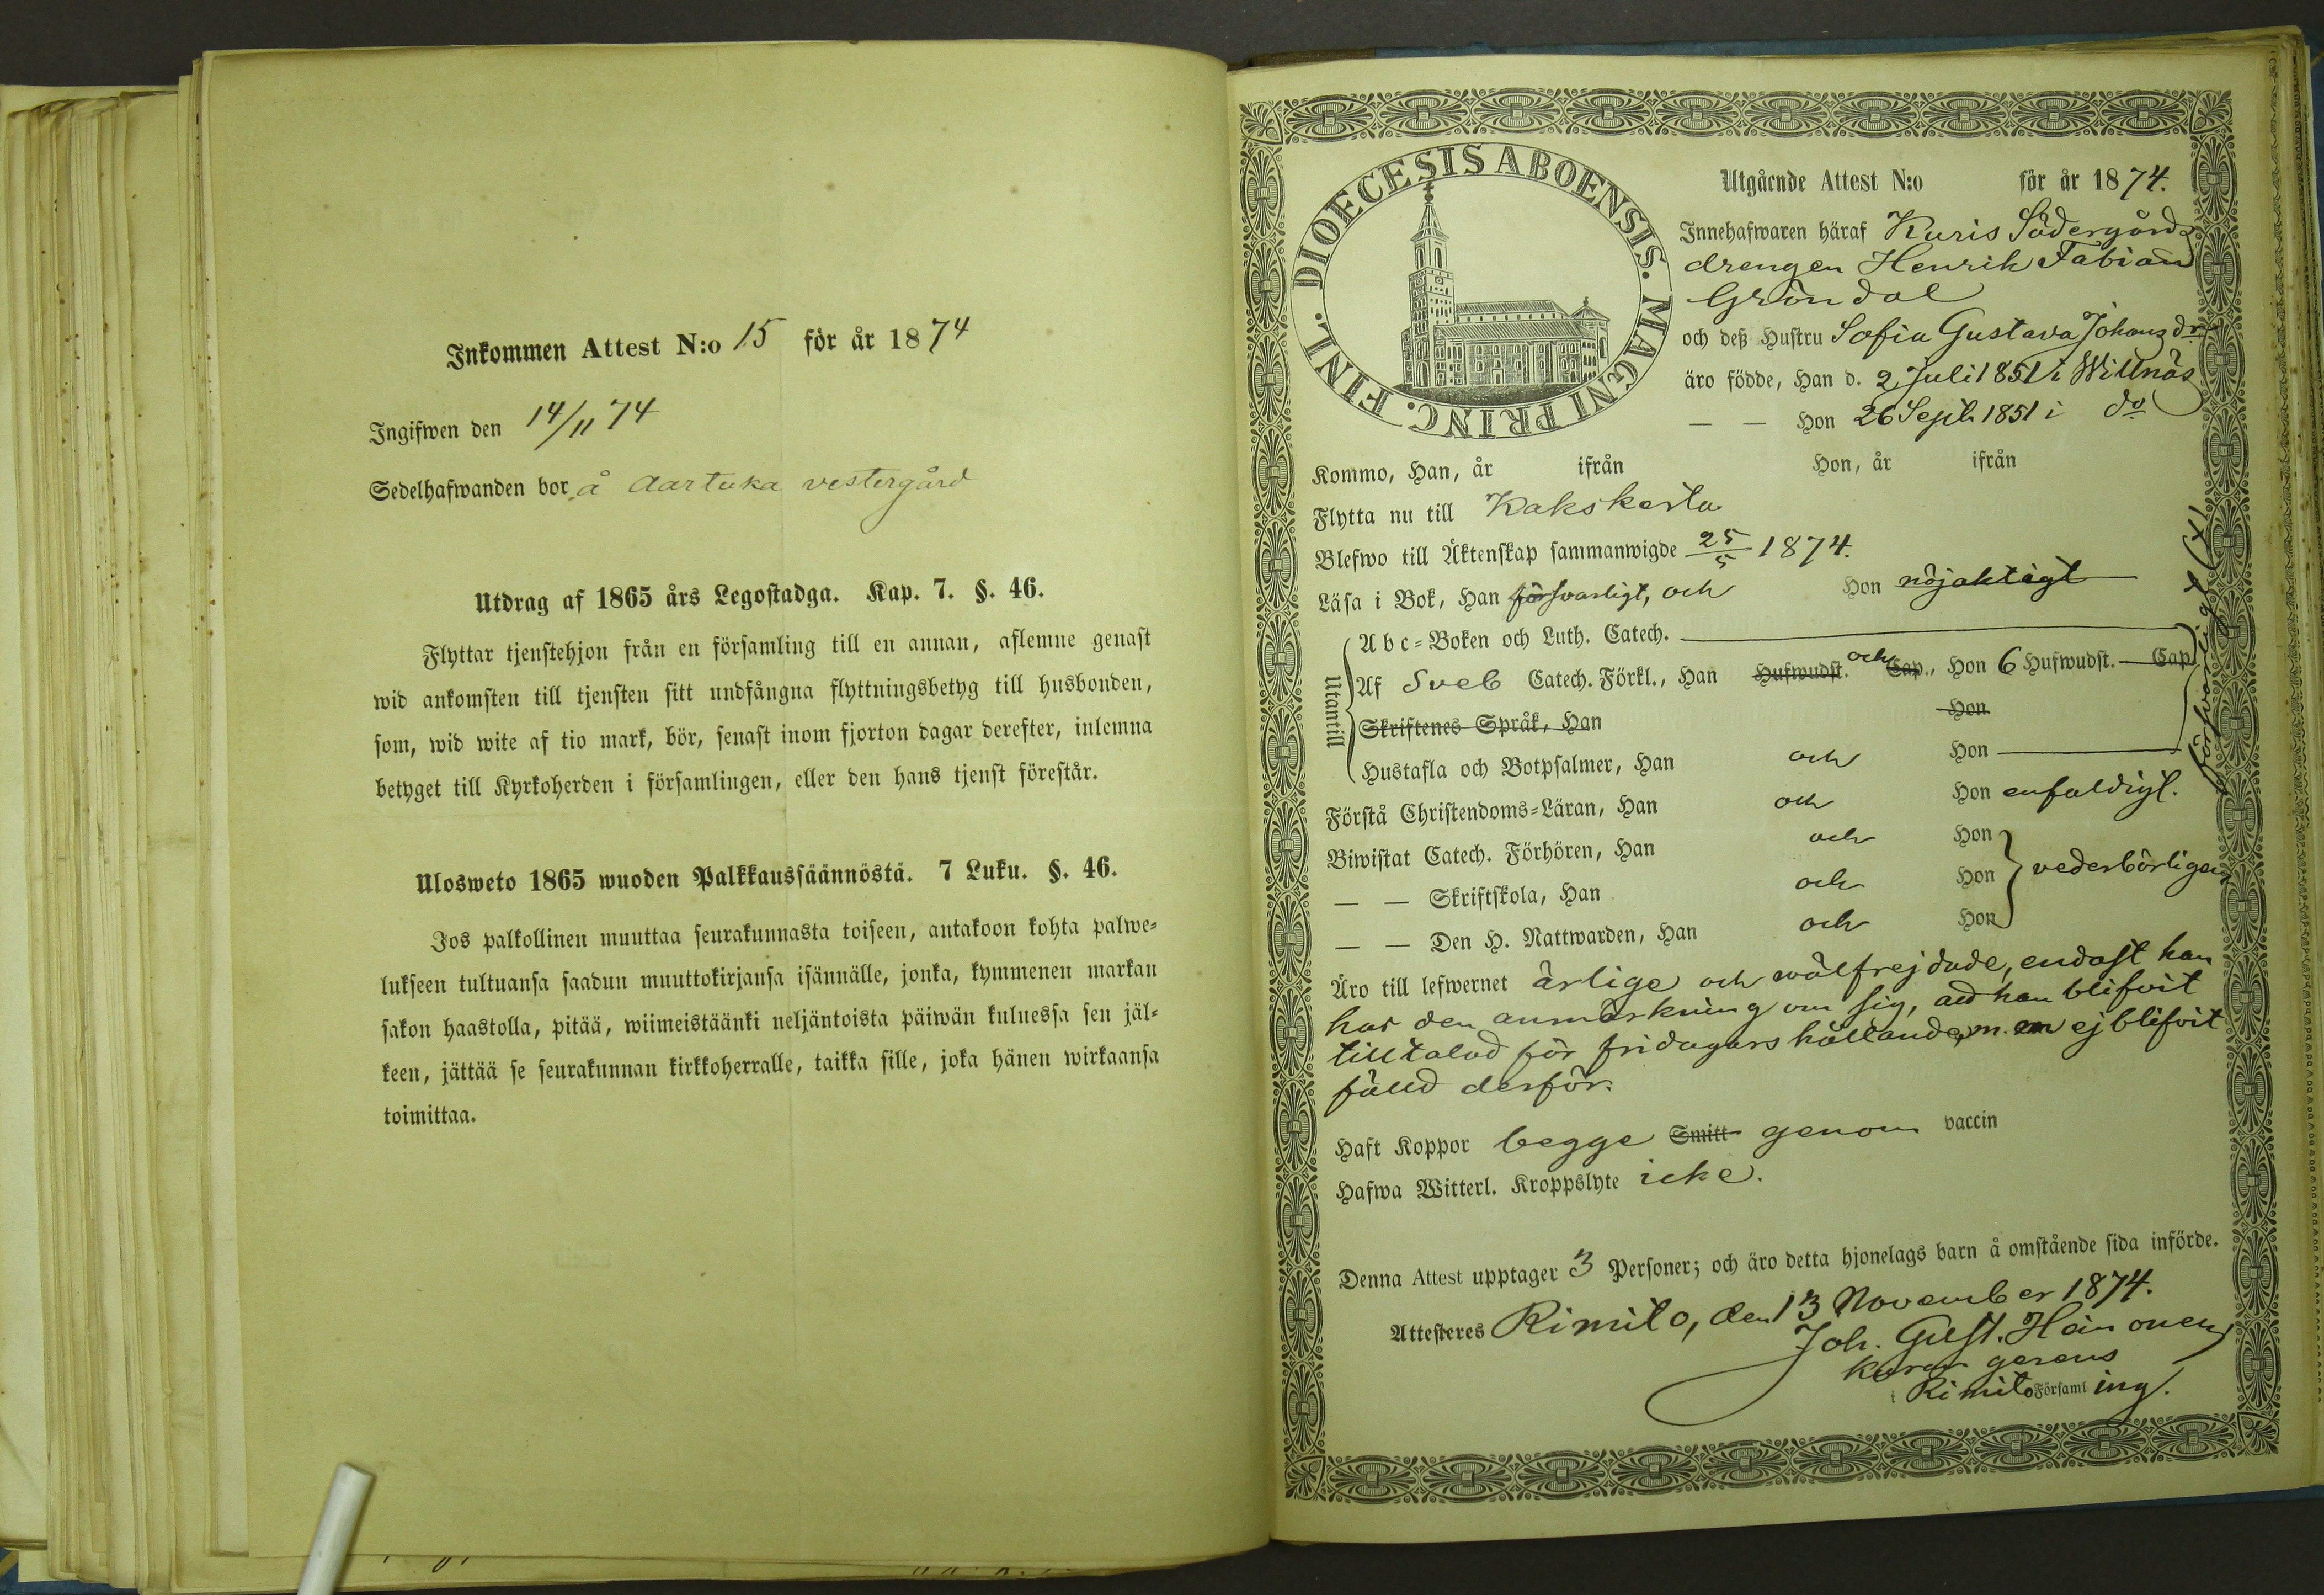 Inkommen Attest N:o 15 för år 1874
Ingifwen den 14/11 74
Sedelhafwanden bor å Aartuka vestergård
Utdrag af 1865 års Legostadga. Kap. 7. §. 46.
Flyttar tjenstehjon från en församling till en annan, aflemne genast
wid ankomsten till tjensten sitt undfångna flyttningsbetyg till husbonden,
som, wid wite af tio mark, bör, senast inom fjorton dagar derefter, inlemna
betyget till Kyrkoherden i församlingen, eller den hans tjenst förestår.
Ulosweto 1865 wuoden Palkkaussäännöstä. 7 Luku. §. 46.
Jos palkollinen muuttaa seurakunnasta toiseen, antakoon kohta palwe-
lukseen tultuansa saadun muuttokirjansa isännälle, jonka, kymmenen markan
sakon haastolla, pitää, wiimeistäänki neljäntoista päiwän kuluessa sen jäl-
keen, jättää se seurakunnan kirkkoherralle, taikka sille, joka hänen wirkaansa
toimittaa.
DIOECESIS ABOENSIS. MAGNI PRINC. FINL.
Utgående Attest N:o för år 1874.
Innehafwaren häraf Kuris Södergårds
drengen Henrik Fabian
Gröndal
och deß Hustru Sofia Gustava Johansdr
äro födde, Han d. 2 Juli 1851 i Willnäs
— — Hon 26 Sept. 1851 i do
Kommo, Han, år ifrån Hon, år ifrån
Flytta nu till Kakskerta
Blefwo till Äktenskap sammanwigde 25/5 1874.
Läsa i Bok, Han försvarligt, och Hon nöjaktigt
Utantill
Abc-Boken och Luth. Catech.
Af Sveb Catech. Förkl., Han Hufwudst. och Cap., Hon 6 Hufwudst. — Cap.
försvarligt
Skriftenes Språk, Han Hon
Hustafla och Botpsalmer, Han och Hon
Förstå Christendoms-Läran, Han och Hon enfaldigt.
Biwistat Catech. Förhören, Han och Hon
— — Skriftskola, Han och Hon vederbörligen
— — Den H. Nattwarden, Han och Hon
Äro till lefwernet ärlige och wälfrejdade, endast han
har den anmärkning om sig, att han blifvit
tilltalad för fridagars hållande, m. ej blifvit
fälld derför.
Haft Koppor begge Smitt genom vaccin
Hafwa Witterl. Kroppslyte icke.
Denna Attest upptager 3 Personer; och äro detta hjonelags barn å omstående sida införde.
Attesteres Rimito, den 13 November 1874.
Joh. Gust. Heinonen
gerens
i Rimito Församling.